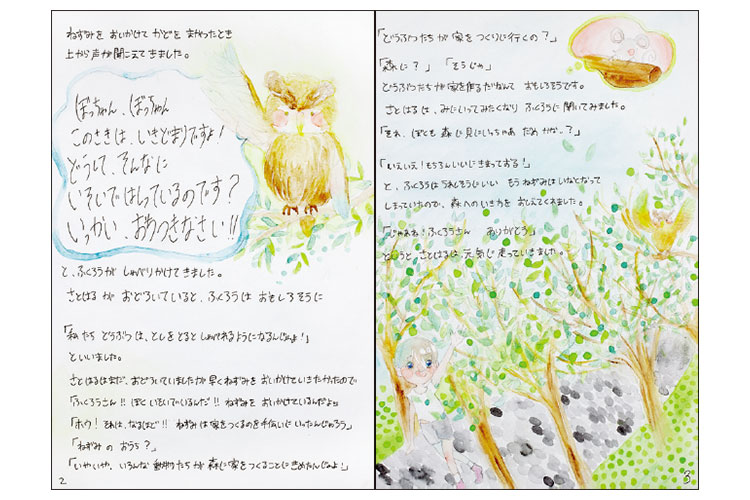 ねずみを おいかけて かどを まがったとき
上から声が聞こえてきました。
ぼっちゃん、ぼっちゃん
このさきは、いきどまりですよ！
どうして、そんなに
いそいではしっているのです？
いっかい、おちつきなさい!!
と、ふくろうが しゃべりかけてきました。
さとはるが おどろいていると、ふくろうは おもしろそうに
「私たち どうぶつは、としをとると しゃべれるようになるんじゃよ！」
といいました。
さとはるはまだ、おどろいていましたが早くねずみを おいかけていきたかったので
「ふくろうさん!! ぼくいそいでいるんだ!! ねずみを おいかけているんだよ」
「ホウ！それは、なるほど!! ねずみは家をつくるのを手伝いに いったんじゃろう」
「ねずみ の おうち？」
「いやいや、いろんな 動物たちが 森に家をつくることにきめたんじゃよ」
2
「どうぶつたちが 家をつくりに行くの？」
「森に？」 「そうじゃ」
どうぶつたちが家を作るだなんて おもしろそうです。
さとはるは、みにいってみたくなり ふくろうに聞いてみました。
「ねえ、ぼくも 森に見にいっちゃあ だめかな。？」
「いえいえ！もちろんいいにきまっておる！」
と、ふくろうはうれしそうにいい もうねずみはいなくなって
しまっていたので、森へのいきかたを おしえてくれました。
「じゃあね！ふくろうさん ありがとう」
というと、さとはるは、元気に走っていきました。
3